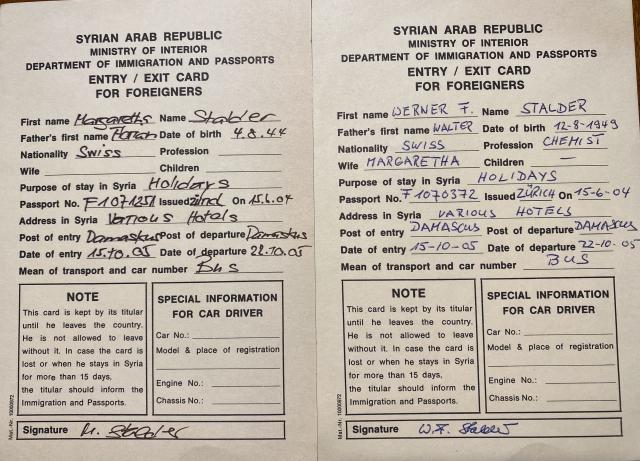 SYRIAN ARAB REPUBLIC
MINISTRY OF INTERIOR
DEPARTMENT OF IMMIGRATION AND PASSPORTS
ENTRY / EXIT CARD
FOR FOREIGNERS
First name Margaretha Name Stalder
Father's first name Date of birth 4.8.44
Nationality Swiss Profession
Wife Children
Purpose of stay in Syria Holidays
Passport No. F1071251 Issued Zürich On 15.6.04
Address in Syria Various Hotels
Post of entry Damaskus Post of departure Damaskus
Date of entry 15.10.05 Date of departure 22.10.05
Mean of transport and car number Bus
NOTE
This card is kept by its titular
until he leaves the country.
He is not allowed to leave
without it. In case the card is
lost or when he stays in Syria
for more than 15 days,
the titular should inform the
Immigration and Passports.
SPECIAL INFORMATION
FOR CAR DRIVER
Car No.:
Model & place of registration
Engine No.:
Chassis No.:
Mat.-Nr. 10000872
Signature M. Stalder
SYRIAN ARAB REPUBLIC
MINISTRY OF INTERIOR
DEPARTMENT OF IMMIGRATION AND PASSPORTS
ENTRY / EXIT CARD
FOR FOREIGNERS
First name WERNER F. Name STALDER
Father's first name WALTER Date of birth 12-8-1949
Nationality SWISS Profession CHEMIST
Wife MARGARETHA Children —
Purpose of stay in Syria HOLIDAYS
Passport No. F1070372 Issued ZÜRICH On 15-6-04
Address in Syria VARIOUS HOTELS
Post of entry DAMASCUS Post of departure DAMASCUS
Date of entry 15-10-05 Date of departure 22-10-05
Mean of transport and car number BUS
NOTE
This card is kept by its titular
until he leaves the country.
He is not allowed to leave
without it. In case the card is
lost or when he stays in Syria
for more than 15 days,
the titular should inform the
Immigration and Passports.
SPECIAL INFORMATION
FOR CAR DRIVER
Car No.:
Model & place of registration
Engine No.:
Chassis No.:
Mat.-Nr. 10000872
Signature W.F. Stalder